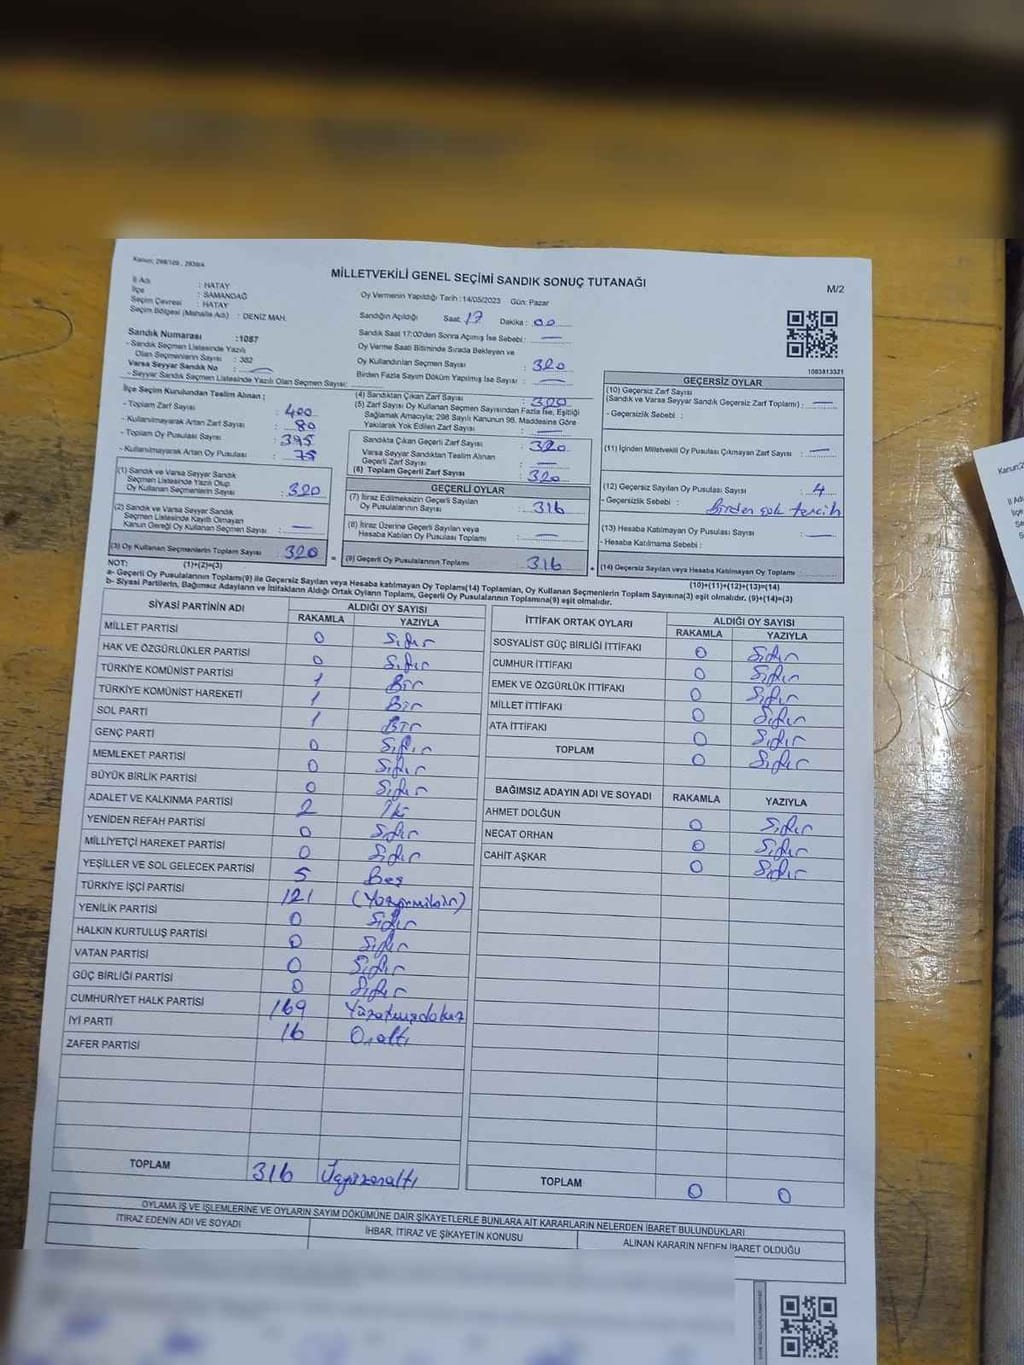 Kanun: 298/109 , 2839/4
MİLLETVEKİLİ GENEL SEÇİMİ SANDIK SONUÇ TUTANAĞI
M/2
İl Adı : HATAY
İlçe : SAMANDAĞ
Seçim Çevresi : HATAY
Seçim Bölgesi (Mahalle Adı) : DENİZ MAH.
Sandık Numarası :1087
- Sandık Seçmen Listesinde Yazılı
Olan Seçmenlerin Sayısı : 382
Varsa Seyyar Sandık No : —
- Seyyar Sandık Seçmen Listesinde Yazılı Olan Seçmen Sayısı:
Oy Vermenin Yapıldığı Tarih : 14/05/2023 Gün: Pazar
Sandığın Açıldığı Saat: 17 Dakika : 00
Sandık Saat 17:00'den Sonra Açılmış İse Sebebi : —
Oy Verme Saati Bitiminde Sırada Bekleyen ve
Oy Kullandırılan Seçmen Sayısı : 320
Birden Fazla Sayım Döküm Yapılmış İse Sayısı : —
1083813321
İlçe Seçim Kurulundan Teslim Alınan ;
- Toplam Zarf Sayısı : 400
- Kullanılmayarak Artan Zarf Sayısı : 80
- Toplam Oy Pusulası Sayısı : 395
- Kullanılmayarak Artan Oy Pusulası : 75
(1) Sandık ve Varsa Seyyar Sandık
Seçmen Listesinde Yazılı Olup
Oy Kullanan Seçmenlerin Sayısı : 320
(2) Sandık ve Varsa Seyyar Sandık
Seçmen Listesinde Kayıtlı Olmayan
Kanun Gereği Oy Kullanan Seçmen Sayısı : —
(3) Oy Kullanan Seçmenlerin Toplam Sayısı : 320
(1)+(2)=(3)
(4) Sandıktan Çıkan Zarf Sayısı : 320
(5) Zarf Sayısı Oy Kullanan Seçmen Sayısından Fazla İse, Eşitliği
Sağlamak Amacıyla; 298 Sayılı Kanunun 98. Maddesine Göre
Yakılarak Yok Edilen Zarf Sayısı : —
Sandıkta Çıkan Geçerli Zarf Sayısı : 320
Varsa Seyyar Sandıktan Teslim Alınan
Geçerli Zarf Sayısı : —
(6) Toplam Geçerli Zarf Sayısı : 320
GEÇERLİ OYLAR
(7) İtiraz Edilmeksizin Geçerli Sayılan
Oy Pusulalarının Sayısı : 316
(8) İtiraz Üzerine Geçerli Sayılan veya
Hesaba Katılan Oy Pusulası Toplamı : —
= (9) Geçerli Oy Pusulalarının Toplamı : 316
GEÇERSİZ OYLAR
(10) Geçersiz Zarf Sayısı
(Sandık ve Varsa Seyyar Sandık Geçersiz Zarf Toplamı) : —
- Geçersizlik Sebebi :
(11) İçinden Milletvekili Oy Pusulası Çıkmayan Zarf Sayısı : —
(12) Geçersiz Sayılan Oy Pusulası Sayısı : 4
- Geçersizlik Sebebi : Birden çok tercih
(13) Hesaba Katılmayan Oy Pusulası Sayısı : —
- Hesaba Katılmama Sebebi :
+ (14) Geçersiz Sayılan veya Hesaba Katılmayan Oy Toplamı :
(10)+(11)+(12)+(13)=(14)
NOT:
a- Geçerli Oy Pusulalarının Toplamı(9) ile Geçersiz Sayılan veya Hesaba katılmayan Oy Toplamı(14) Toplamları, Oy Kullanan Seçmenlerin Toplam Sayısına(3) eşit olmalıdır. (9)+(14)=(3)
b- Siyasi Partilerin, Bağımsız Adayların ve İttifakların Aldığı Ortak Oyların Toplamı, Geçerli Oy Pusulalarının Toplamına(9) eşit olmalıdır.
SİYASİ PARTİNİN ADI ALDIĞI OY SAYISI
RAKAMLA YAZIYLA
MİLLET PARTİSİ 0 Sıfır
HAK VE ÖZGÜRLÜKLER PARTİSİ 0 Sıfır
TÜRKİYE KOMÜNİST PARTİSİ 1 Bir
TÜRKİYE KOMÜNİST HAREKETİ 1 Bir
SOL PARTİ 1 Bir
GENÇ PARTİ 0 Sıfır
MEMLEKET PARTİSİ 0 Sıfır
BÜYÜK BİRLİK PARTİSİ 0 Sıfır
ADALET VE KALKINMA PARTİSİ 2 İki
YENİDEN REFAH PARTİSİ 0 Sıfır
MİLLİYETÇİ HAREKET PARTİSİ 0 Sıfır
YEŞİLLER VE SOL GELECEK PARTİSİ 5 Beş
TÜRKİYE İŞÇİ PARTİSİ 121 (Yüzyirmibir)
YENİLİK PARTİSİ 0 Sıfır
HALKIN KURTULUŞ PARTİSİ 0 Sıfır
VATAN PARTİSİ 0 Sıfır
GÜÇ BİRLİĞİ PARTİSİ 0 Sıfır
CUMHURİYET HALK PARTİSİ 169 Yüzatmışdokuz
İYİ PARTİ 16 Onaltı
ZAFER PARTİSİ
TOPLAM 316 Üçyüzonaltı
İTTİFAK ORTAK OYLARI ALDIĞI OY SAYISI
RAKAMLA YAZIYLA
SOSYALİST GÜÇ BİRLİĞİ İTTİFAKI 0 Sıfır
CUMHUR İTTİFAKI 0 Sıfır
EMEK VE ÖZGÜRLÜK İTTİFAKI 0 Sıfır
MİLLET İTTİFAKI 0 Sıfır
ATA İTTİFAKI 0 Sıfır
TOPLAM 0 Sıfır
BAĞIMSIZ ADAYIN ADI VE SOYADI RAKAMLA YAZIYLA
AHMET DOLĞUN 0 Sıfır
NECAT ORHAN 0 Sıfır
CAHİT AŞKAR 0 Sıfır
TOPLAM 0 0
OYLAMA İŞ VE İŞLEMLERİNE VE OYLARIN SAYIM DÖKÜMÜNE DAİR ŞİKAYETLERLE BUNLARA AİT KARARLARIN NELERDEN İBARET BULUNDUKLARI
İTİRAZ EDENİN ADI VE SOYADI
İHBAR, İTİRAZ VE ŞİKAYETİN KONUSU
ALINAN KARARIN NEDEN İBARET OLDUĞU